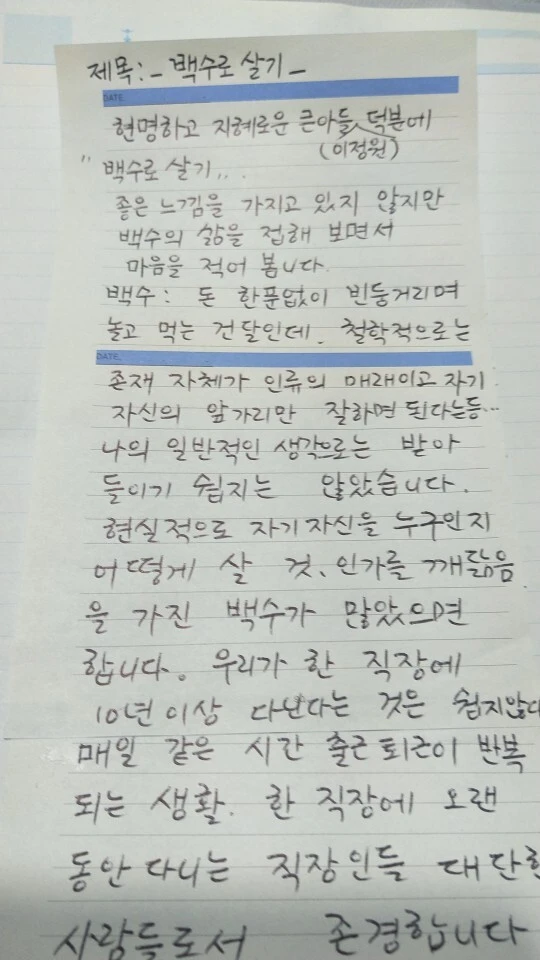 제목: - 백수로 살기 -
DATE
현명하고 지혜로운 큰아들 덕분에
(이정원)
" 백수로 살기...
좋은 느낌을 가지고 있지 않지만
백수의 삶을 접해 보면서
마음을 적어 봅니다.
백수 : 돈 한푼없이 빈둥거리며
놀고 먹는 건달인데. 철학적으로는
DATE
존재 자체가 인류의 매래이고 자기
자신의 앞가리만 잘하면 된다는등...
나의 일반적인 생각으로는 받아
들이기 쉽지는 않았습니다.
현실적으로 자기자신을 누구인지
어떻게 살 것. 인가를 깨닮음
을 가진 백수가 많았으면
합니다. 우리가 한 직장에
10년이상 다닌다는 것은 쉽지않다
매일 같은 시간 출근퇴근이 반복
되는 생활. 한 직장에 오랜
동안 다니는 직장인들 대단한
사람들로서 존경합니다